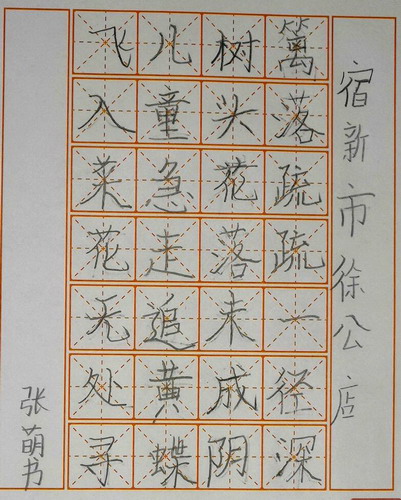 宿新市徐公店
篱落疏疏一径深
树头花落未成阴
儿童急走追黄蝶
飞入菜花无处寻
张萌书